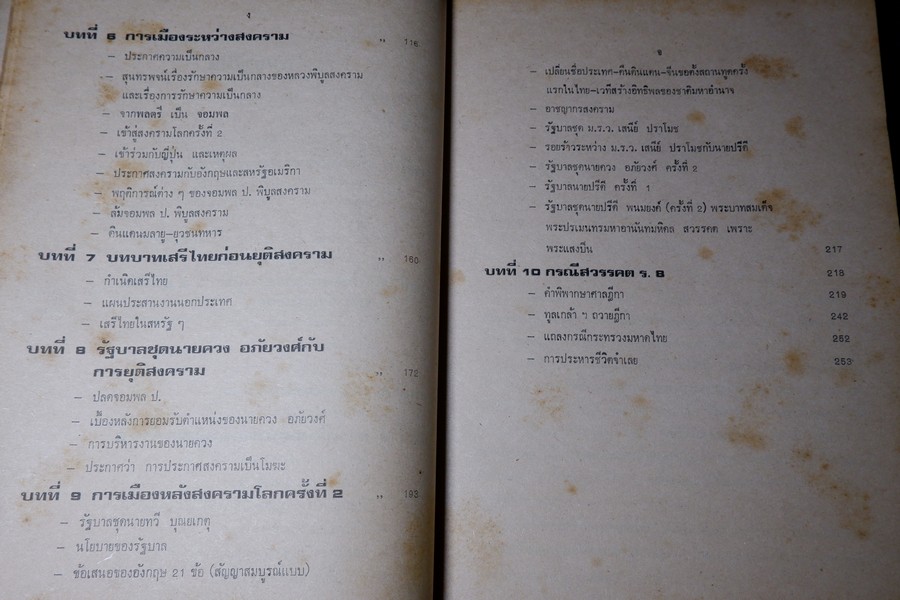 ง
บทที่ 6 การเมืองระหว่างสงคราม " 116
– ประกาศความเป็นกลาง
– สุนทรพจน์เรื่องรักษาความเป็นกลางของหลวงพิบูลสงคราม
และเรื่องการรักษาความเป็นกลาง
– จากพลตรี เป็น จอมพล
– เข้าสู่สงครามโลกครั้งที่ 2
– เข้าร่วมกับญี่ปุ่น และเหตุผล
– ประกาศสงครามกับอังกฤษและสหรัฐอเมริกา
– พฤติการณ์ต่าง ๆ ของจอมพล ป. พิบูลสงคราม
– ล้มจอมพล ป. พิบูลสงคราม
– ดินแดนมลายู-ยุวชนทหาร
บทที่ 7 บทบาทเสรีไทยก่อนยุติสงคราม " 160
– กำเนิดเสรีไทย
– แผนประสานงานนอกประเทศ
– เสรีไทยในสหรัฐ ๆ
บทที่ 8 รัฐบาลชุดนายควง อภัยวงศ์กับ
การยุติสงคราม " 172
– ปลดจอมพล ป.
– เบื้องหลังการยอมรับตำแหน่งของนายควง อภัยวงศ์
– การบริหารงานของนายควง
– ประกาศว่า การประกาศสงครามเป็นโมฆะ
บทที่ 9 การเมืองหลังสงครามโลกครั้งที่ 2 " 193
– รัฐบาลชุดนายทวี บุณยเกตุ
– นโยบายของรัฐบาล
– ข้อเสนอของอังกฤษ 21 ข้อ (สัญญาสมบูรณ์แบบ)
– เปลี่ยนชื่อประเทศ-คืนดินแดน-จีนขอตั้งสถานทูตครั้ง
แรกในไทย-เวทีสร้างอิทธิพลของชาติมหาอำนาจ
– อาชญากรสงคราม
– รัฐบาลชุด ม.ร.ว. เสนีย์ ปราโมช
– รอยร้าวระหว่าง ม.ร.ว. เสนีย์ ปราโมชกับนายปรีดี
– รัฐบาลชุดนายควง อภัยวงศ์ ครั้งที่ 2
– รัฐบาลนายปรีดี ครั้งที่ 1
– รัฐบาลชุดนายปรีดี พนมยงค์ (ครั้งที่ 2) พระบาทสมเด็จ
พระปรเมนทรมหาอานันทมหิดล สวรรคต เพราะ
พระแสงปืน 217
บทที่ 10 กรณีสวรรคต ร. 8 218
– คำพิพากษาศาลฎีกา 219
– ทูลเกล้า ฯ ถวายฎีกา 242
– แถลงกรณีกระทรวงมหาดไทย 252
– การประหารชีวิตจำเลย 253